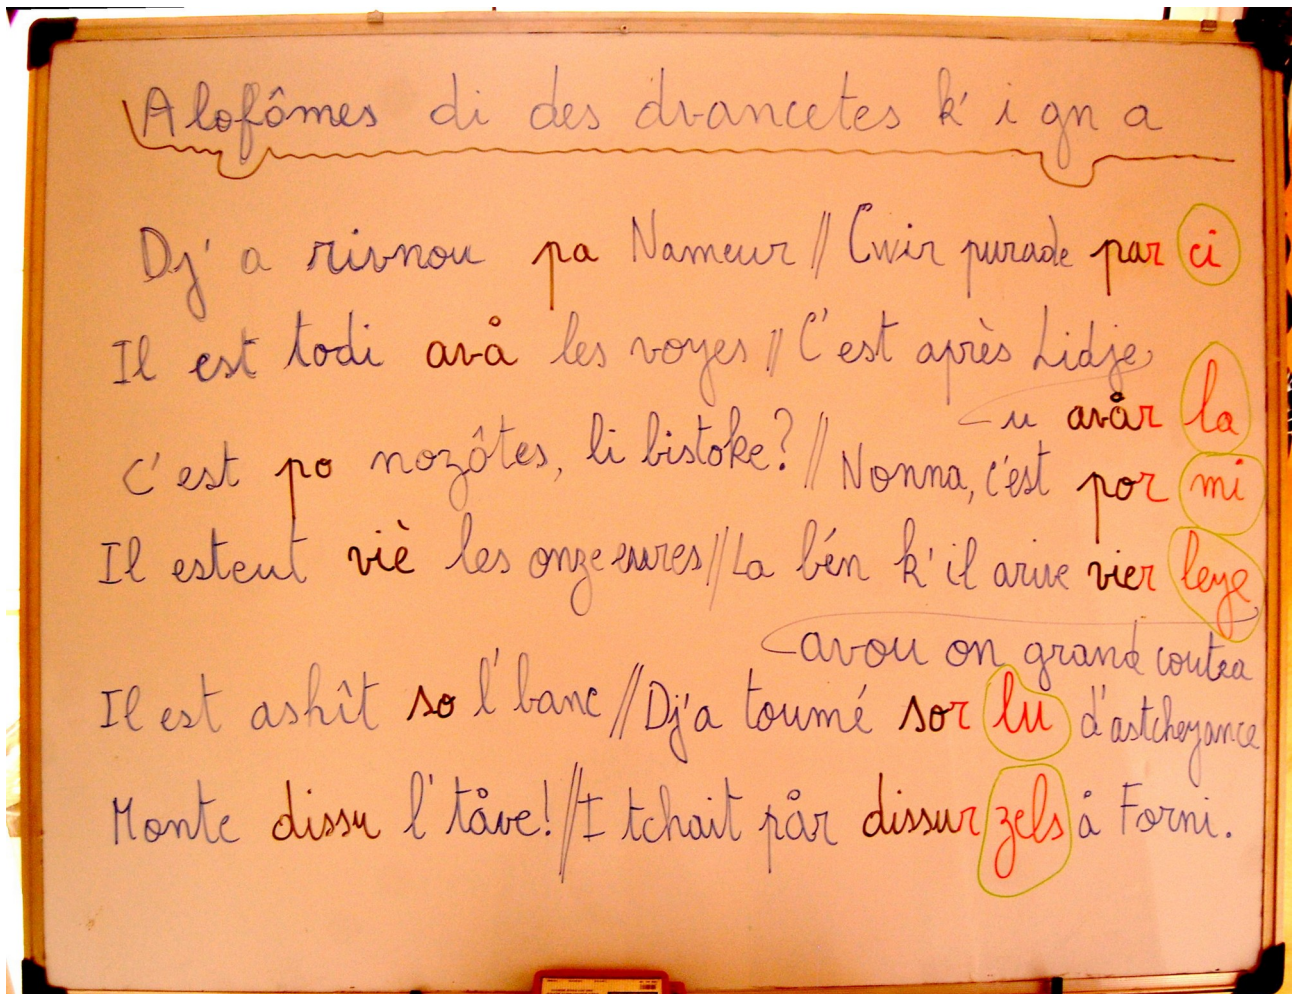 Alofômes di des dvancetes k' i gn a
Dj' a rivnou pa Nameur // Cwir purade par ci
Il est todi avå les voyes // C'est après Lidje
u avår la
C'est po nozôtes, li bistoke? // Nonna, c'est por mi
Il esteut viè les onze eures // La bén k' il arive vier leye
avou on grand coutea
Il est ashît so l' banc // Dj'a toumé sor lu d'astcheyance
Monte dissu l' tåve! // I tchait pår dissur zels å Forni.